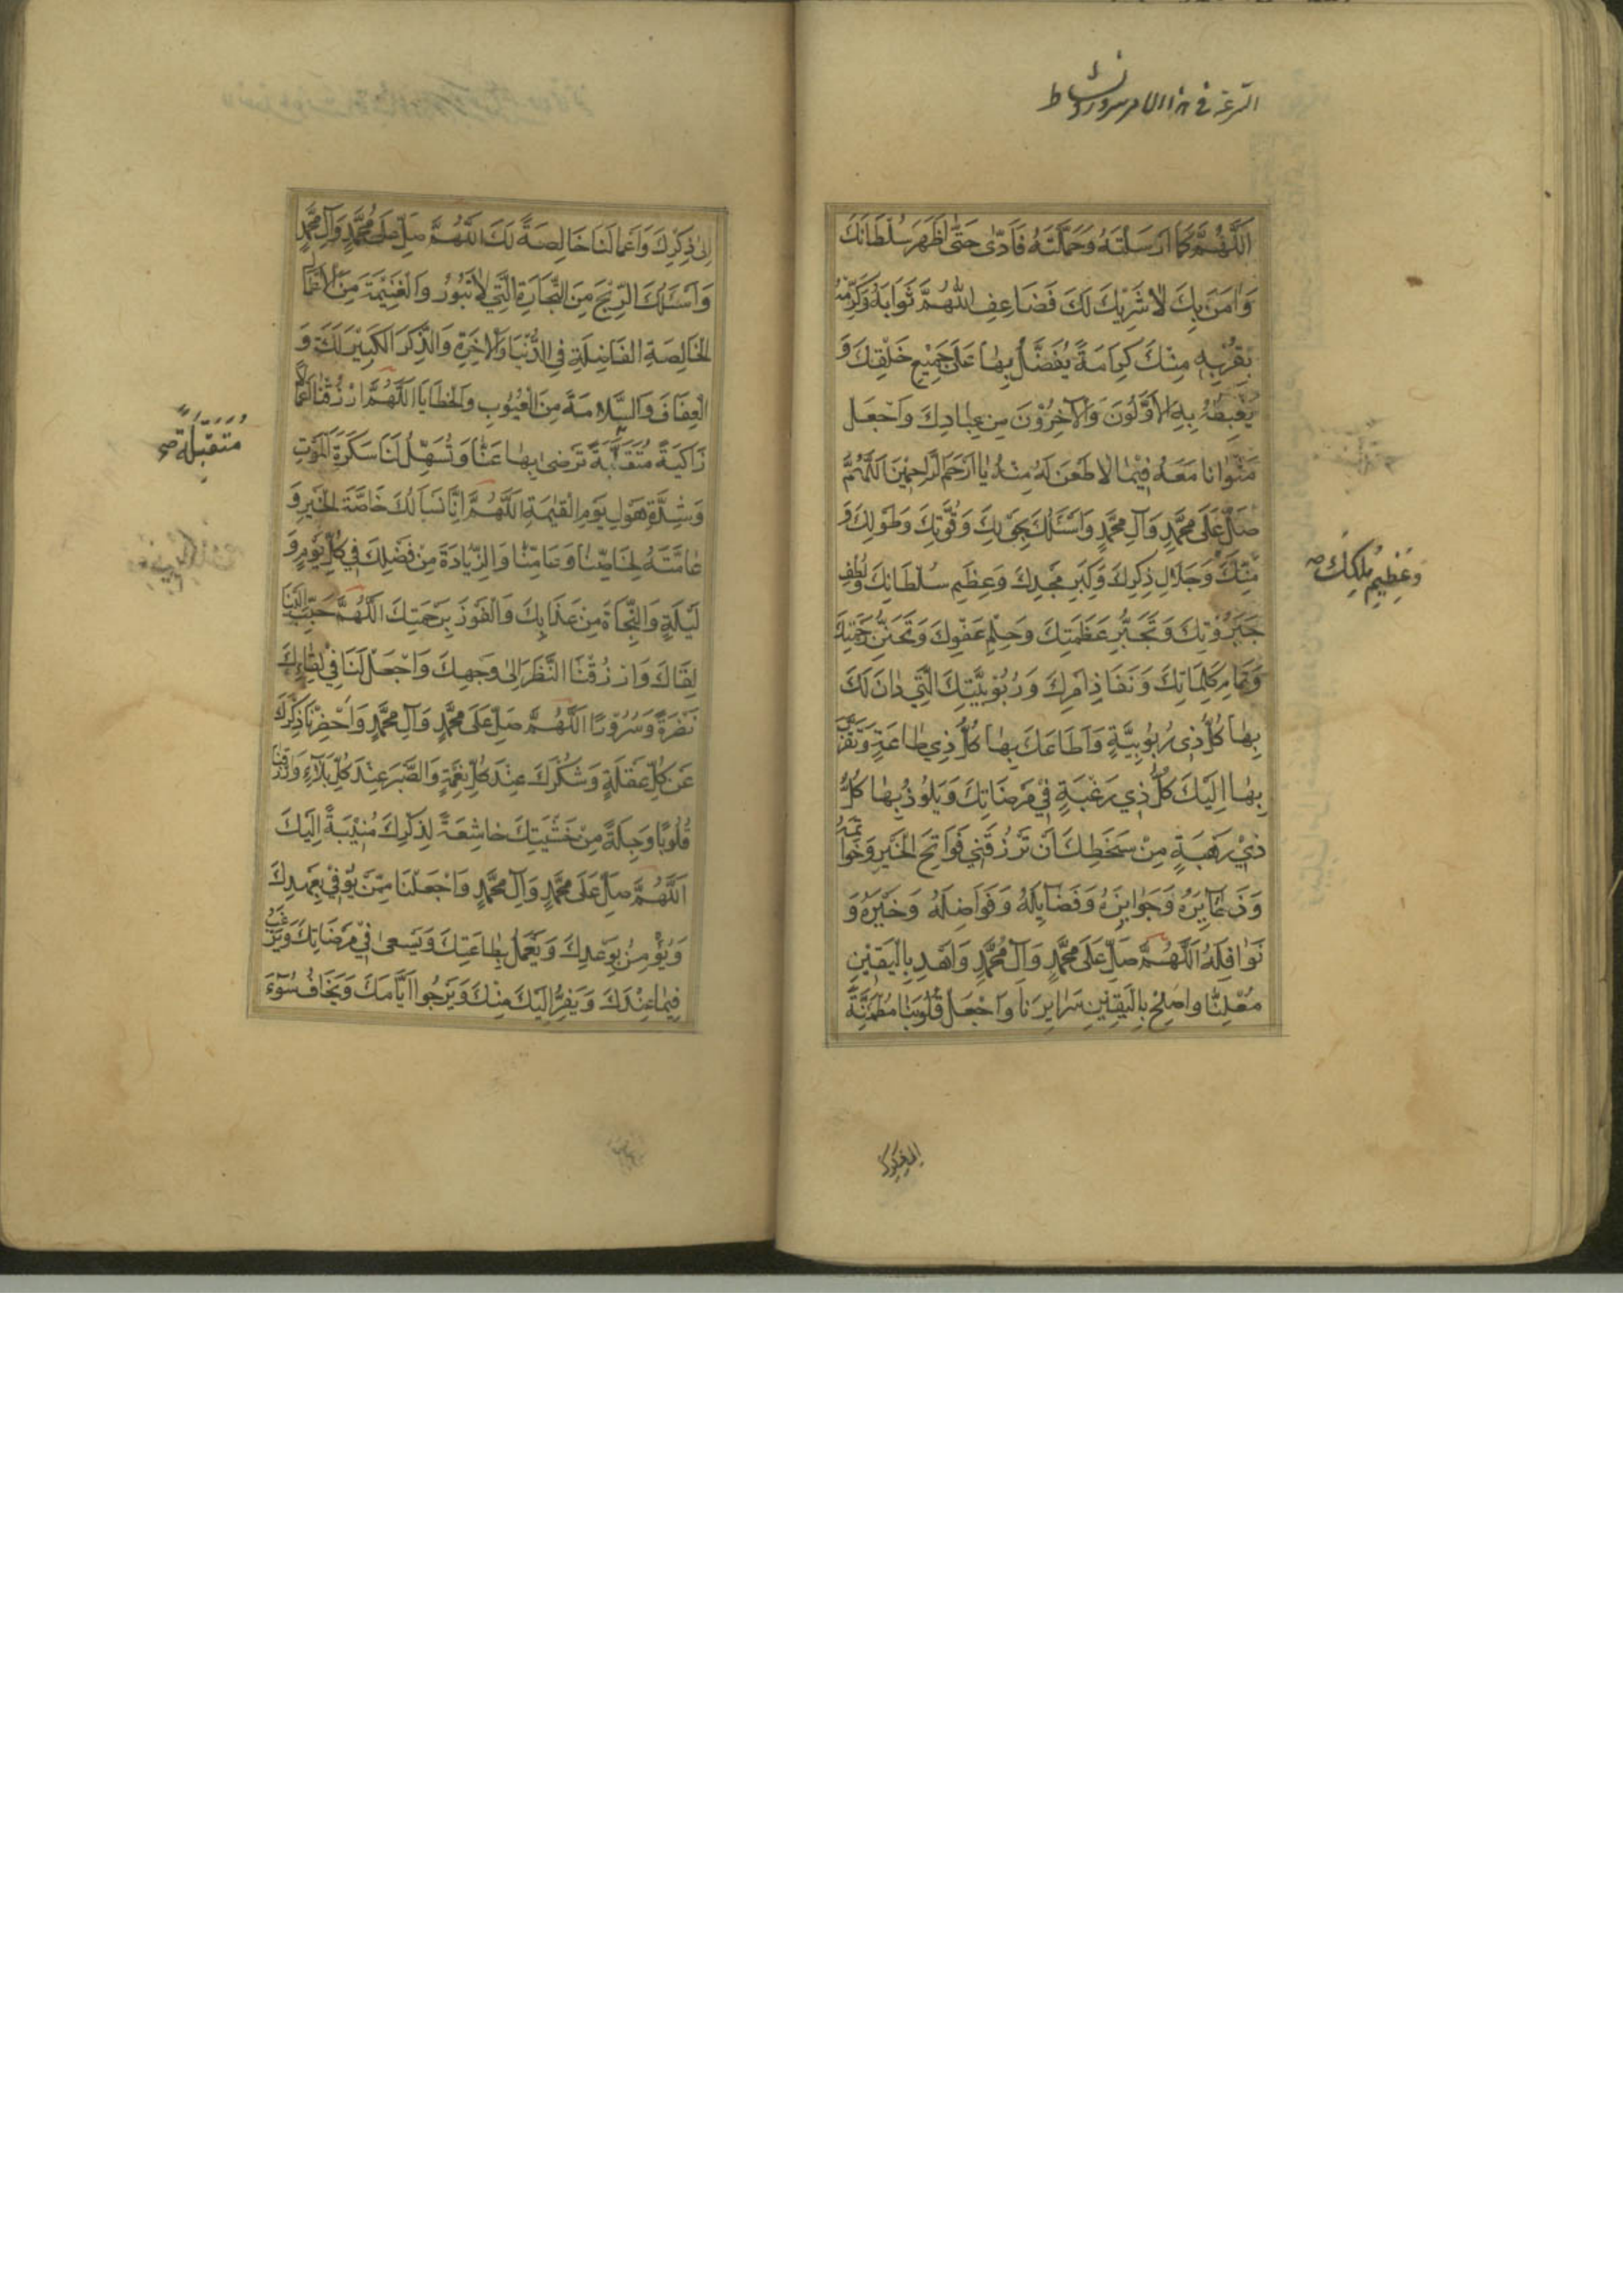 اَللّٰهُمَّ كَمَا اَرْسَلْتَهُ وَحَمَّلْتَهُ فَاَدّٰى حَتّٰى اَظْهَرَ سُلْطَانَكَ
وَاٰمَنَ بِكَ لَاشَرِيْكَ لَكَ فَضَاعِفِ اللّٰهُمَّ ثَوَابَهُ وَكَرِّمْهُ
بِقُرْبِهِ مِنْكَ كَرَامَةً يُفَضَّلُ بِهَا عَلٰى جَمِيْعِ خَلْقِكَ وَ
يَغْبِطُهُ بِهِ الْاَوَّلُونَ وَالْآخِرُوْنَ مِنْ عِبَادِكَ وَاجْعَلْ
مَثْوَانَا مَعَهُ فِيْمَا لَا ظَعْنَ لَهُ مِنْهُ يَا اَرْحَمَ الرَّاحِمِيْنَ اَللّٰهُمَّ
صَلِّ عَلٰى مُحَمَّدٍ وَآلِ مُحَمَّدٍ وَاَسْئَلُكَ بِحَوْلِكَ وَقُوَّتِكَ وَطَوْلِكَ وَ
مَنِّكَ وَجَلَالِ ذِكْرِكَ وَكِبَرِ مَجْدِكَ وَعَظِيْمِ سُلْطَانِكَ وَلُطْفِ
وَعَظِيْمِ مُلْكِكَ صح
جَبَرُوْتِكَ وَتَجَبُّرِ عَظَمَتِكَ وَحِلْمِ عَفْوِكَ وَتَحَنُّنِ رَحْمَتِكَ
وَتَمَامِ كَلِمَاتِكَ وَنَفَاذِ اَمْرِكَ وَرُبُوْبِيَّتِكَ الَّتِي دَانَ لَكَ
بِهَا كُلُّ ذِي رُبُوبِيَّةٍ وَاَطَاعَكَ بِهَا كُلُّ ذِي طَاعَةٍ وَتَقَرَّبَ
بِهَا اِلَيْكَ كُلُّ ذِي رَغْبَةٍ فِيْ مَرْضَاتِكَ وَيَلُوْذُ بِهَا كُلُّ
ذِيْ رَهْبَةٍ مِنْ سَخَطِكَ اَنْ تَرْزُقَنِي فَوَاتِحَ الْخَيْرِ وَخَوَاتِمَهُ
وَذَخَايِرَهُ وَجَوَايِزَهُ وَفَضَايِلَهُ وَفَوَاضِلَهُ وَخَيْرَهُ وَ
نَوَافِلَهُ اَللّٰهُمَّ صَلِّ عَلٰى مُحَمَّدٍ وَآلِ مُحَمَّدٍ وَاهْدِ بِالْيَقِيْنِ
مُعْلِنَنَا وَاَصْلِحْ بِالْيَقِيْنِ سَرَايِرَنَا وَاجْعَلْ قُلُوْبَنَا مُطْمَئِنَّةً
اِلٰى ذِكْرِكَ وَاَعْمَالَنَا خَالِصَةً لَكَ اَللّٰهُمَّ صَلِّ عَلٰى مُحَمَّدٍ وَآلِ مُحَمَّدٍ
وَاَسْئَلُكَ الرِّبْحَ مِنَ التِّجَارَةِ الَّتِي لَا تَبُوْرُ وَالْغَنِيْمَةَ مِنَ الْاَعْمَالِ
الْخَالِصَةِ الْفَاضِلَةِ فِي الدُّنْيَا وَالْاٰخِرَةِ وَالذِّكْرَ الْكَبِيْرَ لَكَ وَ
الْعِفَافَ وَالسَّلَامَةَ مِنَ الْعُيُوْبِ وَالْخَطَايَا اَللّٰهُمَّ ارْزُقْنَا اَعْمَالًا
زَاكِيَةً مُتَقَبَّلَةً تَرْضٰى بِهَا عَنَّا وَتُسَهِّلُ لَنَا سَكْرَةَ الْمَوْتِ
مُتَقَبَّلَةً صح
وَشِدَّةَ هَوْلِ يَوْمِ الْقِيٰمَةِ اَللّٰهُمَّ اِنَّا نَسْاَلُكَ خَاصَّةَ الْخَيْرِ وَ
عَامَّتَهُ لِخَاصِّنَا وَعَامِّنَا وَالزِّيَادَةَ مِنْ فَضْلِكَ فِي كُلِّ يَوْمٍ وَ
لَيْلَةٍ وَالنَّجَاةَ مِنْ عَذَابِكَ وَالْفَوْزَ بِرَحْمَتِكَ اَللّٰهُمَّ حَبِّبْ اِلَيْنَا
لِقَاكَ وَارْزُقْنَا النَّظَرَ اِلٰى وَجْهِكَ وَاجْعَلْ لَنَا فِي لِقَائِكَ
نَضْرَةً وَسُرُوْرًا اَللّٰهُمَّ صَلِّ عَلٰى مُحَمَّدٍ وَآلِ مُحَمَّدٍ وَاَحْضِرْنَا ذِكْرَكَ
عِنْدَ كُلِّ غَفْلَةٍ وَشُكْرَكَ عِنْدَ كُلِّ نِعْمَةٍ وَالصَّبْرَ عِنْدَ كُلِّ بَلَاءٍ وَارْزُقْنَا
قُلُوْبًا وَجِلَةً مِنْ خَشْيَتِكَ خَاشِعَةً لِذِكْرِكَ مُنِيْبَةً اِلَيْكَ
اَللّٰهُمَّ صَلِّ عَلٰى مُحَمَّدٍ وَآلِ مُحَمَّدٍ وَاجْعَلْنَا مِمَّنْ يُوْفِيْ بِعَهْدِكَ
وَيُؤْمِنُ بِوَعْدِكَ وَيَعْمَلُ بِطَاعَتِكَ وَيَسْعٰى فِيْ مَرْضَاتِكَ وَيَرْغَبُ
فِيمَا عِنْدَكَ وَيَفِرُّ اِلَيْكَ مِنْكَ وَيَرْجُوا اَيَّامَكَ وَيَخَافُ سُوْءَ